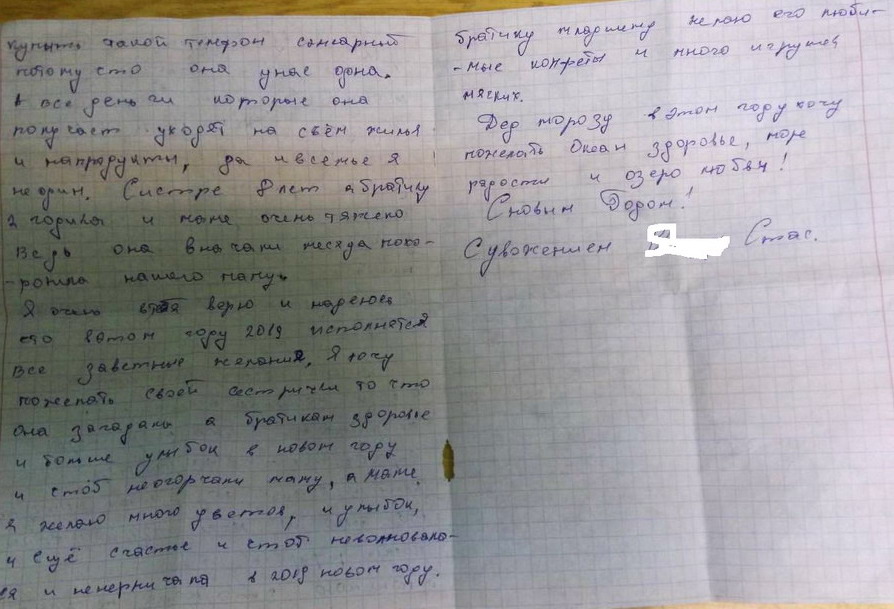 купить такой телефон сенсорный
потому сто она унас одна.
А все деньги которые она
получает уходят на свём жильё
и напродукты, да и всемье я
не один. Систре 8 лет а братику
2 годика и маме очень тяжело
Ведь она вначали месяца похо-
-ронила нашего папу.
Я очень верю и надеюсь
сто вэтом году 2019 исполнется
все заветные желания, Я хочу
пожелать своей сестричке то что
она загадала а братикам здоровье
и больше улыбок в новом году
и стоб неогорчали маму, а маме
я желаю много цветов, и улыбок,
и ещё счастье и стоб неволновала-
ся и ненерничала в 2019 новом году.
братику младшему желаю его люби-
-мые конфеты и много игрушек
мяских.
Дед морозу вэтом году хочу
пожелать Океан здоровье, море
радости и озеро любви!
Сновым Годом!
Суважением Стас.